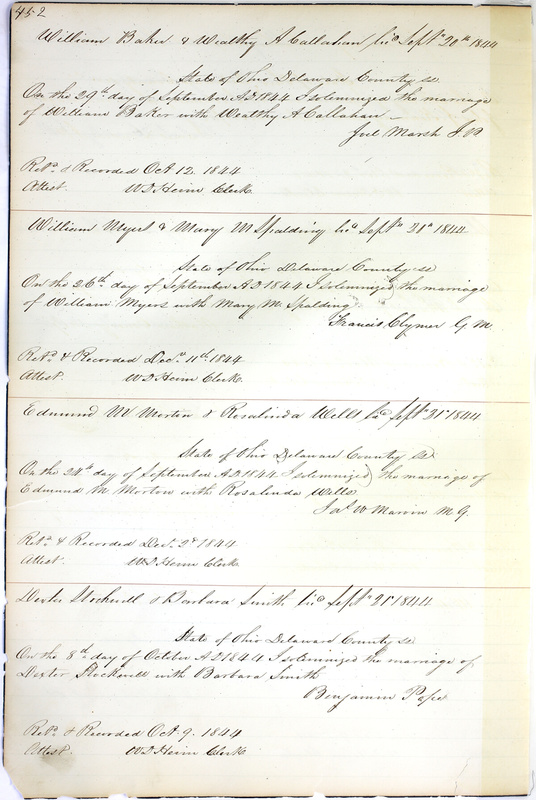 452
William Baker & Wealthy A Callahan lic Sept 20th 1844
State of Ohio Delaware County ss
On the 29th day of September AD 1844 I solemnized the marriage
of William Baker with Wealthy A Callahan
Joel Marsh J P
Retd & Recorded Oct 12. 1844
Attest. W D Heim Clerk
William Myers & Mary M Spalding lic Sept 21st 1844
State of Ohio Delaware County ss
On the 26th day of September AD 1844 I solemnized the marriage
of William Myers with Mary M. Spalding
Francis Clymer G. M.
Retd & Recorded Decr 11th 1844
Attest. W D Heim Clerk
Edmund M Morton & Rosalinda Wells lic Sept 21st 1844
State of Ohio Delaware County ss
On the 24th day of September AD 1844 I solemnized the marriage of
Edmund M Morton with Rosalinda Wells
Jas W Marvin M G.
Retd & Recorded Dec. 2d 1844
Attest. W D Heim Clerk
Dexter Stockwell & Barbara Smith lic Sept 21st 1844
State of Ohio Delaware County ss
On the 8th day of October AD 1844 I solemnized the marriage of
Dexter Stockwell with Barbara Smith
Benjamin
Retd & Recorded Oct. 9. 1844
Attest. W D Heim Clerk